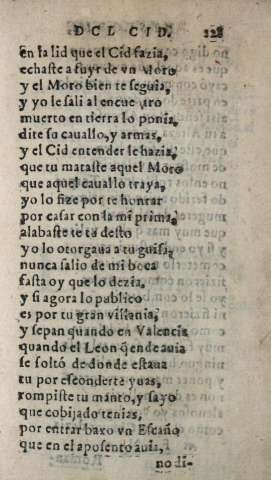 DCL CID. 128
en la lid que el Cid fazia,
echaste a fuyr de vn Moro
y el Moro bien te seguia,
y yo le sali al encue tro
muerto en tierra lo ponia,
dite so cauallo, y armas,
y el Cid entender le hazia,
que tu mataste aquel Moro
que aquel cauallo traya,
yo lo fize por te honrar
por casar con la mi prima,
alabaste te tā desto
yo lo otorgaua a tu guisa,
nunca salio de mi boca
fasta oy que lo dezia,
y si agora lo publico
es por tu gran villania,
y sepan quando en Valencia
quando el Leon q̄ ende auia
se soltó de donde estaua
tu por esconderte yuas,
rompiste tu manto, y sayo
que cobijado tenias,
por entrar baxo vn Escaño
que en el aposento auia,
no di-